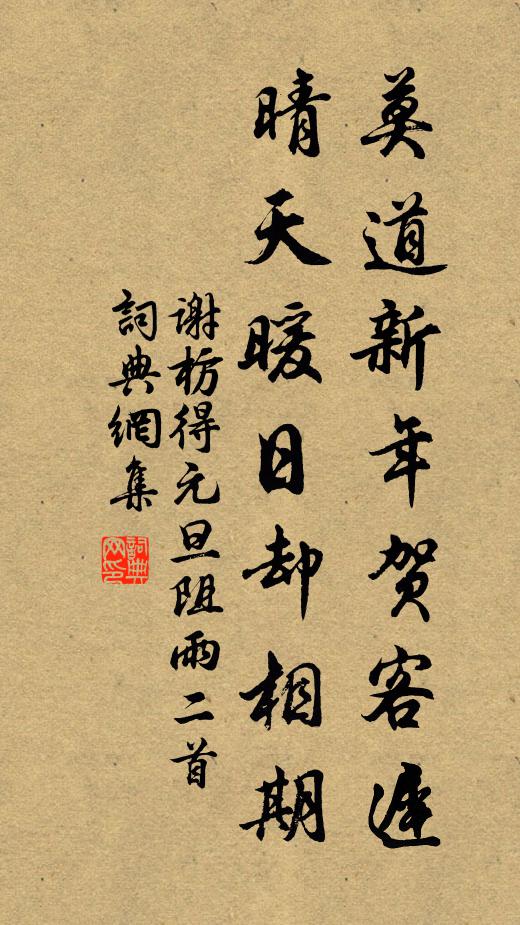 莫道新年賀客遲
晴天暖日却相期
谢枋得元旦阻雨二首
詞典網集
詞典网印